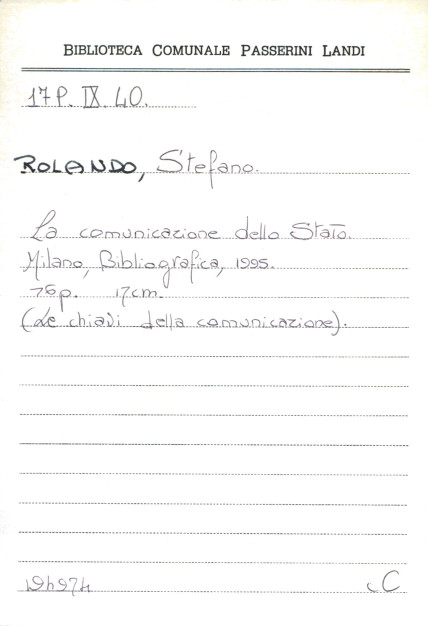 BIBLIOTECA COMUNALE PASSERINI LANDI
17P. IX. 40.
ROLANDO, Stefano.
La comunicazione dello Stato.
Milano, Bibliografica, 1995.
76p. 17cm.
(Le chiavi della comunicazione).
C